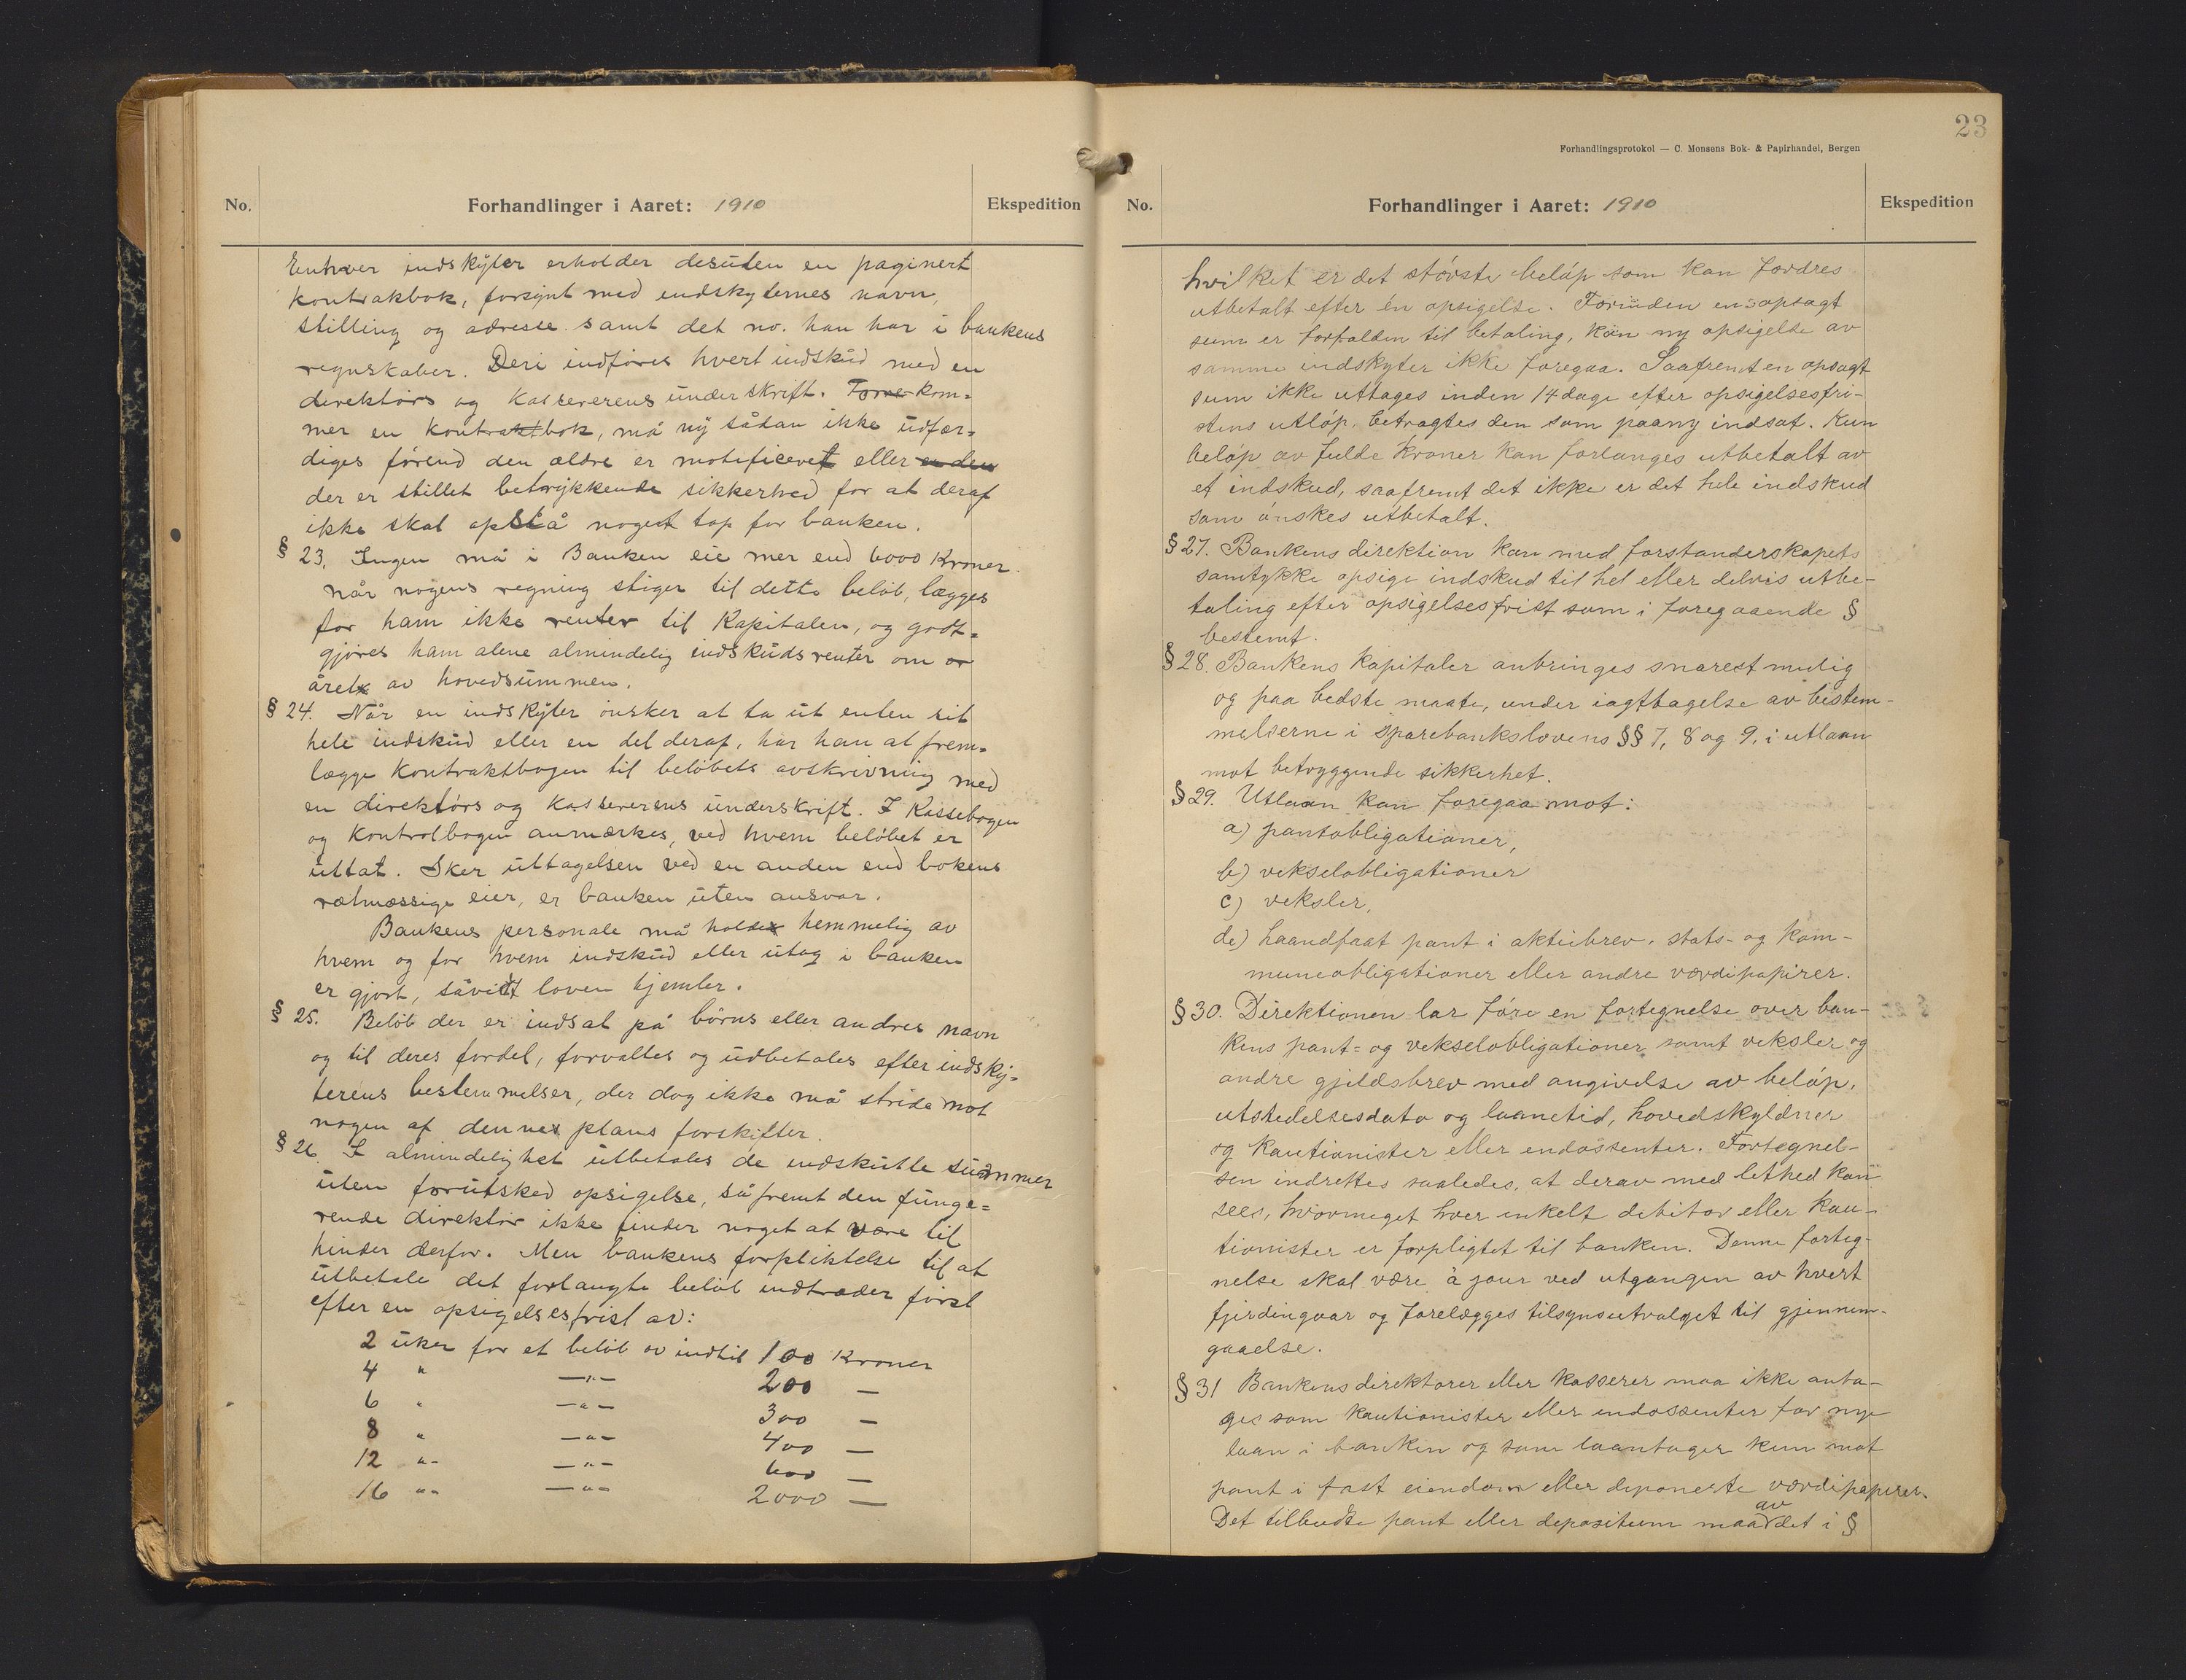 No.
Forhandlinger i Aaret: 1910
Ekspedition
Enhver indskyter erholder desuten en paginert
kontrakbok, forsynt med indskyternes navn,
stilling og adresse samt det no. han har i bankens
regnskaber. Deri indføres hvert indskud med en
direktørs og kassererens underskrift. Forve kom=
mer en kontraktbok, må ny sådan ikke udfær=
diges førend den ældre er motificeret eller en den
der er stillet betrykkende sikkerhed for at deraf
ikke skal opstå noget tap for banken.
§ 23. Ingen må i Banken eie mer end 6000 Kroner.
når nogens regning stiger til dette beløb, lægges
for ham ikke renter til Kapitalen, og godt=
gjøres ham alene almindelig indskudsrenter om
året av hovedsummen.
§ 24. Når en indskyter ønsker at ta ut enten sit
hele indskud eller en del deraf, har han at frem=
lægge kontraktbogen til beløbets avskrivning med
en direktørs og kassererens underskrift. I Kassebogen
og kontrolbogen anmærkes, ved hvem beløbet er
uttat. Sker uttagelsen ved en anden end bokens
rætmæssige eier, er banken uten ansvar.
Bankens personale må holde hemmelig av
hvem og for hvem indskud eller utag i banken
er gjort, såvidt loven hjemler.
§ 25. Beløb der er indsat på børns eller andres navn
og til deres fordel, forvaltes og udbetales efter indsky=
terens bestemmelser, der dog ikke må stride mot
nogen af dennes plans forskifter.
§ 26. I almindelighet utbetales de indskutte summer
uten forutsked opsigelse, såfremt den funge=
rende direktør ikke finder noget at være til
hinder derfor. Men bankens forpliktelse til at
utbetale det forlangte beløb indtræder først
efter en opsigelsesfrist av:
2 uker for et beløb av indtil 100 Kroner
4 " —"— 200 —
6 " —"— 300 —
8 " —"— 400 —
12 " —"— 600 —
16 " —"— 2000 —
23
Forhandlingsprotokol — C. Monsens Bok- & Papirhandel, Bergen
No.
Forhandlinger i Aaret: 1910
Ekspedition
hvilket er det største beløp som kan fordres
utbetalt efter én opsigelse. Forinden en opsagt
sum er forfalden til betaling, kan ny opsigelse av
samme indskyter ikke foregaa. Saafremt en opsagt
sum ikke uttages inden 14 dage efter opsigelsesfri-
stens utløp, betragtes den som paany indsat. Kun
beløp av fulde kroner kan forlanges utbetalt av
et indskud, saafremt det ikke er det hele indskud
som ønskes utbetalt.
§ 27. Bankens direktion kan med forstanderskapets
samtykke opsige indskud til hel eller delvis utbe-
taling efter opsigelsesfrist som i foregaaende §
bestemt.
§ 28. Bankens kapitaler anbringes snarest mulig
og paa bedste maate, under iagttagelse av bestem-
melserne i sparebankslovens §§ 7, 8 og 9, i utlaan
mot betryggende sikkerhet.
§ 29. Utlaan kan foregaa mot:
a) pantobligationer,
b) vekselobligationer
c) veksler,
de) haandfaat pant i aktiebrev, stats- og kom-
muneobligationer eller andre værdipapirer.
§ 30. Direktionen lar føre en fortegnelse over ban-
kens pant= og vekselobligationer, samt veksler og
andre gjeldsbrev med angivelse av beløp,
utstedelsesdato og laanetid, hovedskyldner
og kautionister eller endossenter. Fortegnel-
sen indrettes saaledes, at derav med lethed kan
sees, hvormeget hver enkelt debitor eller kau-
tionister er forpligtet til banken. Denne forteg-
nelse skal være à jour ved utgangen av hvert
fjerdingaar og forelægges tilsynsutvalget til gjennem-
gaaelse.
§ 31 Bankens direktører eller kasserer maa ikke anta-
ges som kautionister eller endossenter for nye
laan i banken og som laantager kun mot
pant i fast eiendom eller deponerte værdipapirer.
Det tilbudte pant eller depositum maa av det i §